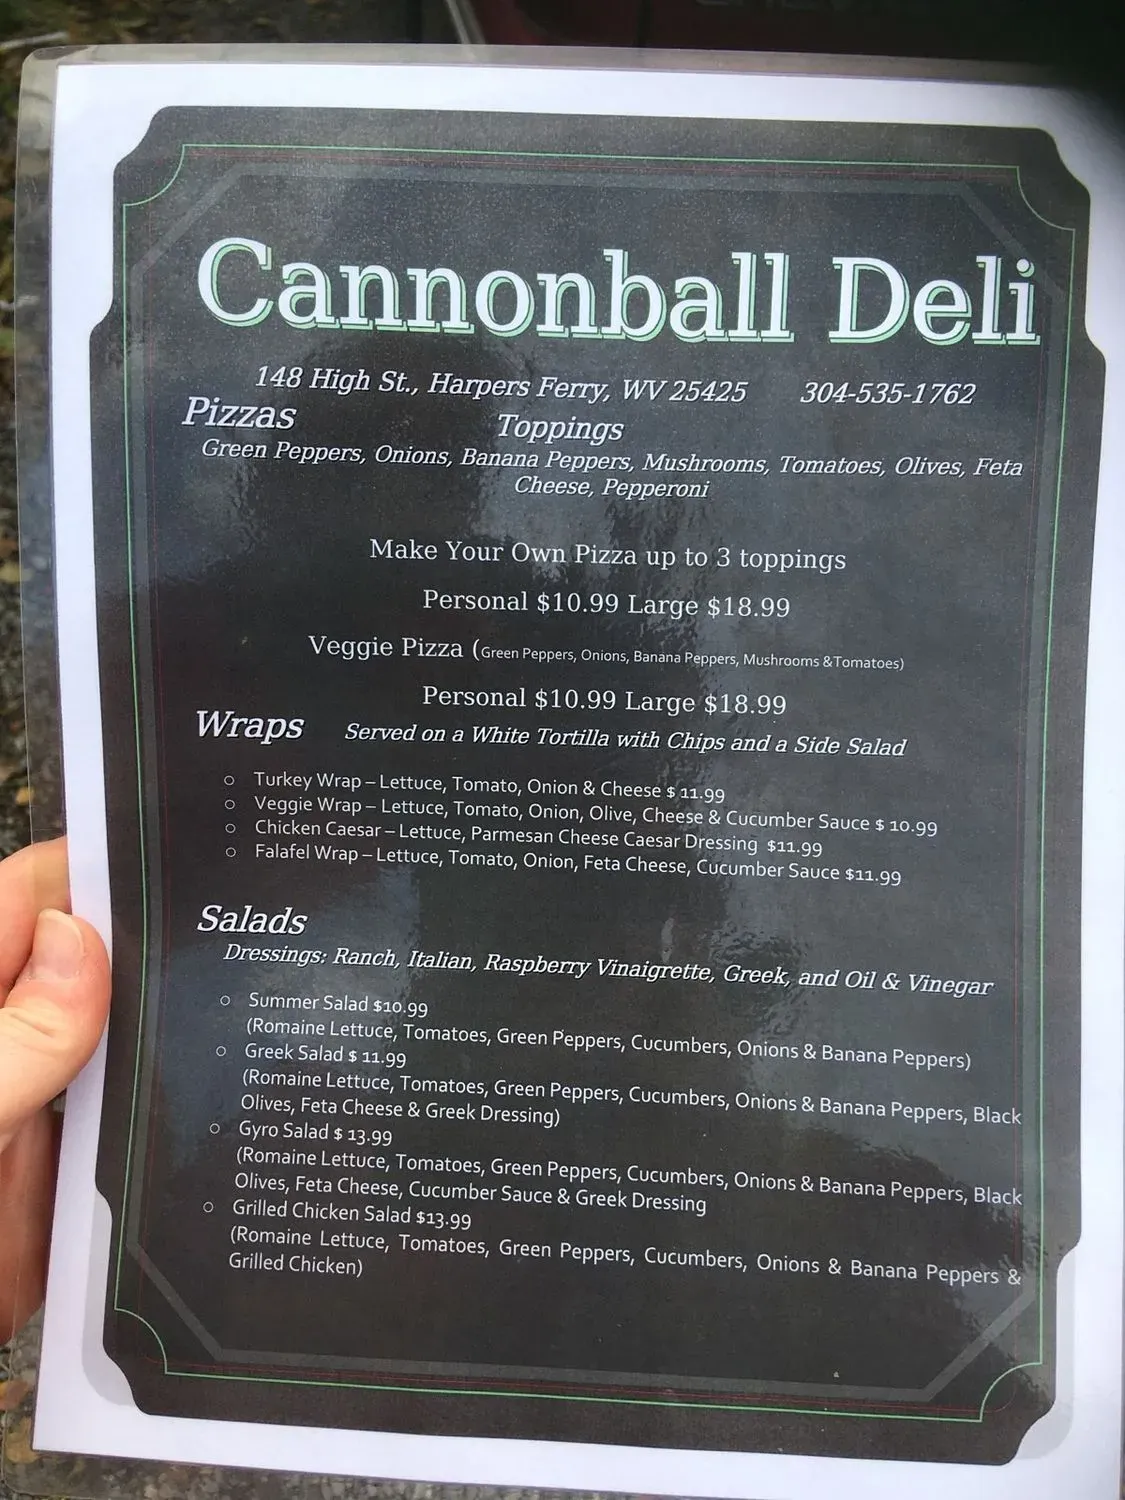 Cannonball Deli
148 High St., Harpers Ferry, WV 25425 304-535-1762
Pizzas Toppings
Green Peppers, Onions, Banana Peppers, Mushrooms, Tomatoes, Olives, Feta
Cheese, Pepperoni
Make Your Own Pizza up to 3 toppings
Personal $10.99 Large $18.99
Veggie Pizza (Green Peppers, Onions, Banana Peppers, Mushrooms &Tomatoes)
Personal $10.99 Large $18.99
Wraps Served on a White Tortilla with Chips and a Side Salad
○ Turkey Wrap – Lettuce, Tomato, Onion & Cheese $ 11.99
○ Veggie Wrap – Lettuce, Tomato, Onion, Olive, Cheese & Cucumber Sauce $ 10.99
○ Chicken Caesar – Lettuce, Parmesan Cheese Caesar Dressing $11.99
○ Falafel Wrap – Lettuce, Tomato, Onion, Feta Cheese, Cucumber Sauce $11.99
Salads
Dressings: Ranch, Italian, Raspberry Vinaigrette, Greek, and Oil & Vinegar
○ Summer Salad $10.99
(Romaine Lettuce, Tomatoes, Green Peppers, Cucumbers, Onions & Banana Peppers)
○ Greek Salad $ 11.99
(Romaine Lettuce, Tomatoes, Green Peppers, Cucumbers, Onions & Banana Peppers, Black
Olives, Feta Cheese & Greek Dressing)
○ Gyro Salad $ 13.99
(Romaine Lettuce, Tomatoes, Green Peppers, Cucumbers, Onions & Banana Peppers, Black
Olives, Feta Cheese, Cucumber Sauce & Greek Dressing
○ Grilled Chicken Salad $13.99
(Romaine Lettuce, Tomatoes, Green Peppers, Cucumbers, Onions & Banana Peppers &
Grilled Chicken)